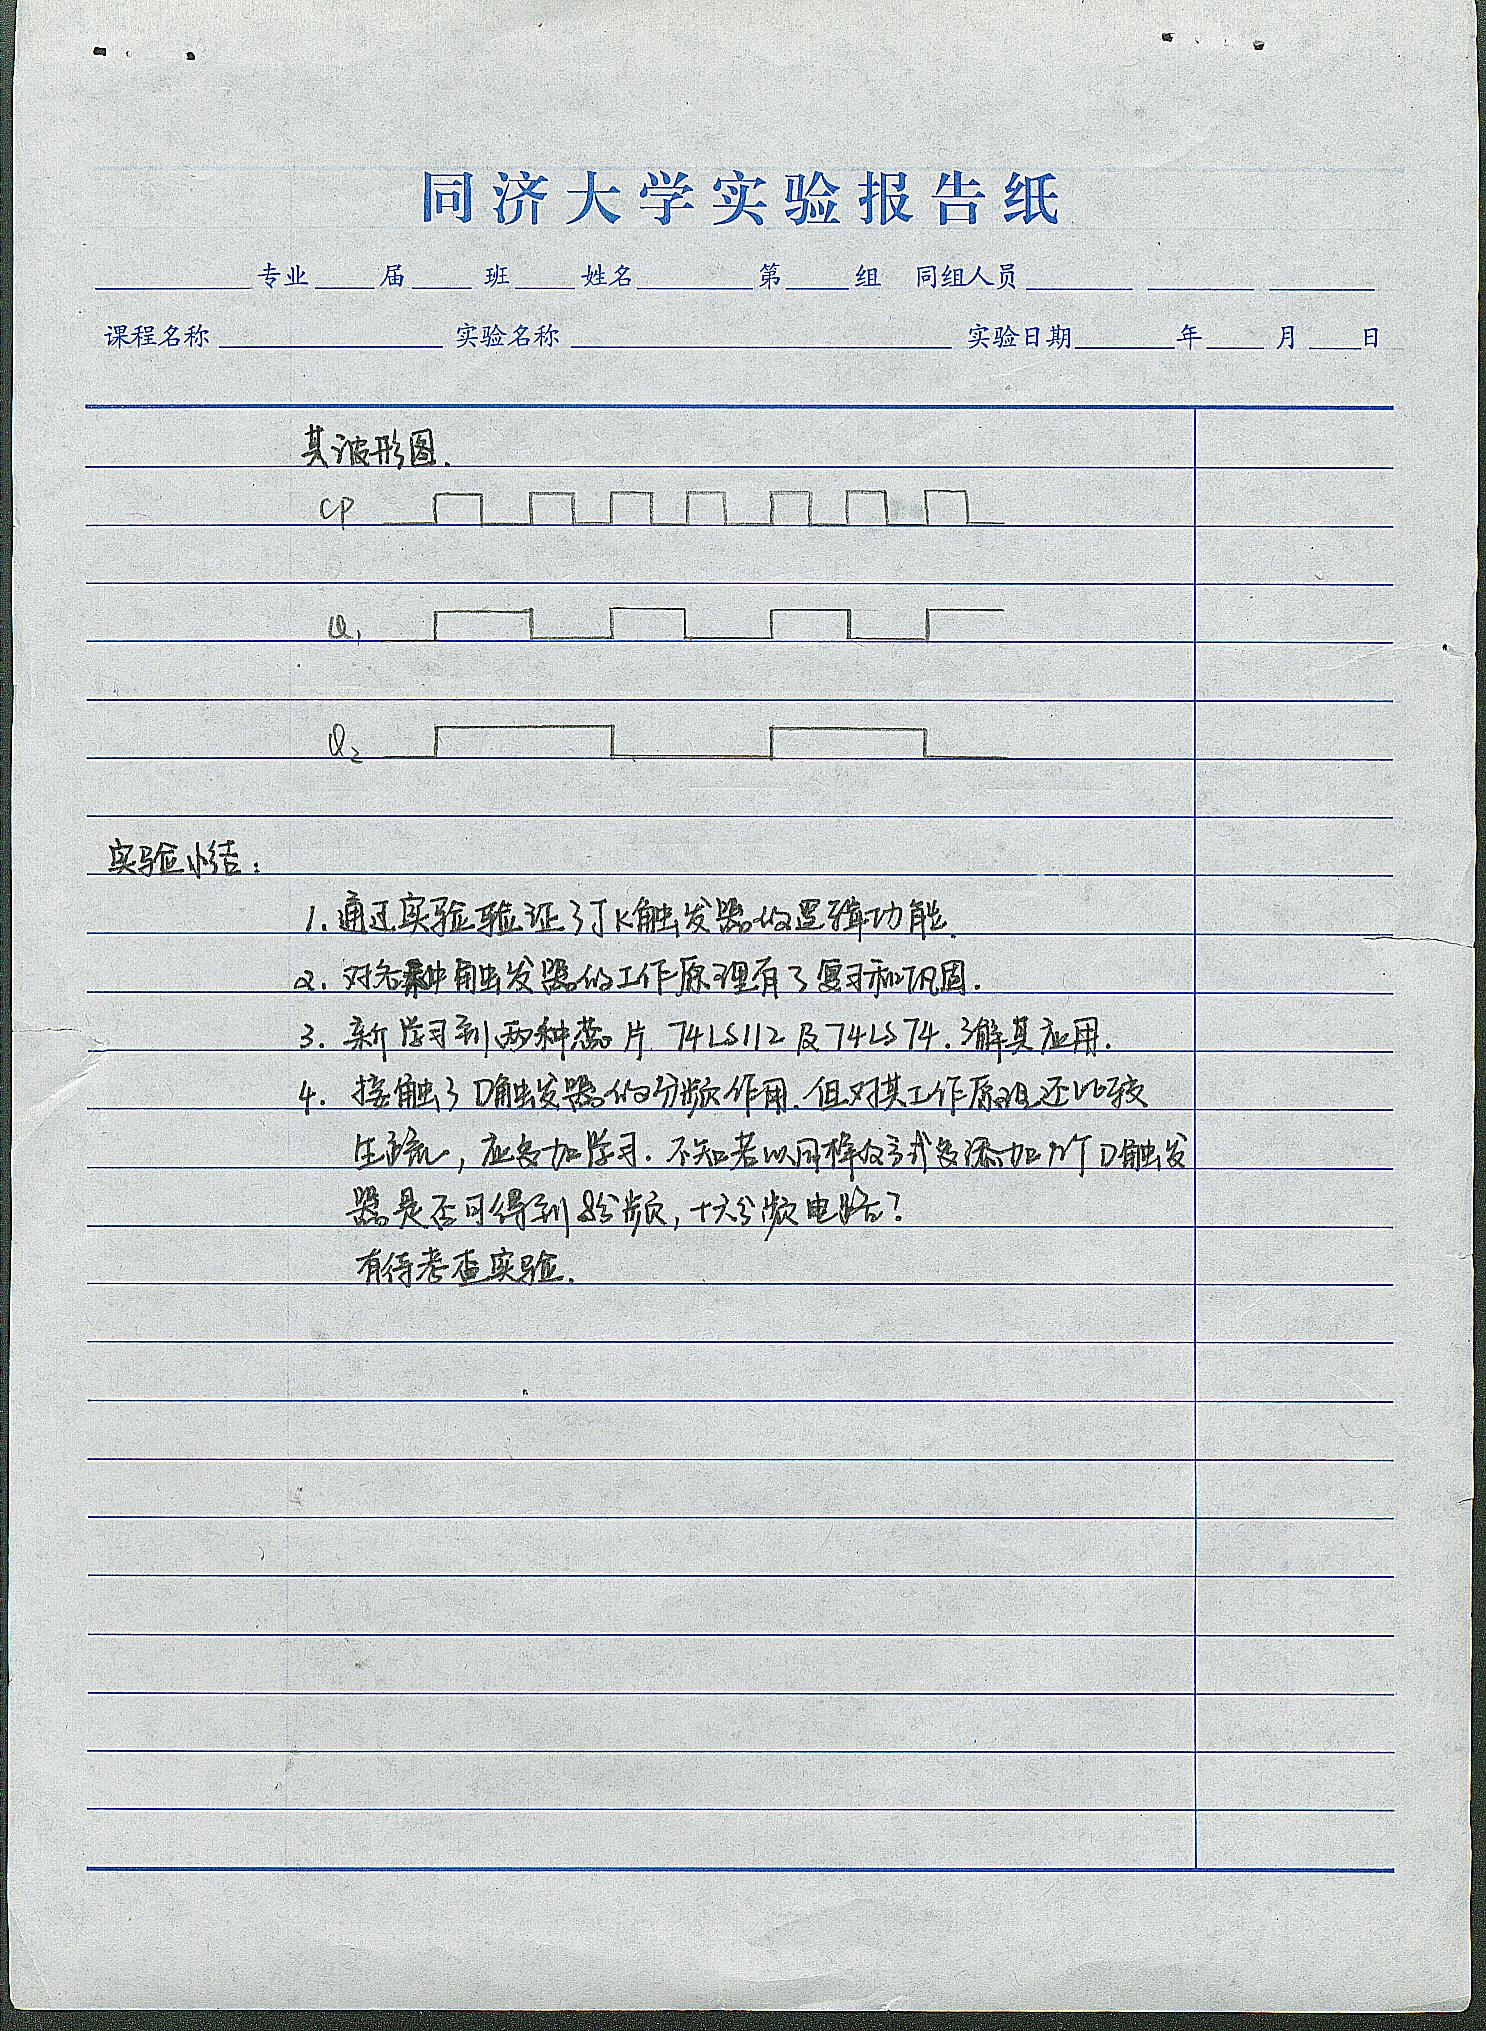 同济大学实验报告纸
专业 届 班 姓名 第 组 同组人员
课程名称 实验名称 实验日期 年 月 日
其波形图.
CP
Q₁
Q₂
实验小结:
1. 通过实验验证了JK触发器的逻辑功能.
2. 对各种触发器的工作原理有了复习和巩固.
3. 新学习到两种芯片. 74LS112及74LS74. 了解其应用.
4. 接触了D触发器的分频作用. 但对其工作原理还比较
生疏, 应多加学习. 不知若以同样的方式多添加n个D触发
器是否可得到8分频, 十六分频电路?
有待考查实验.